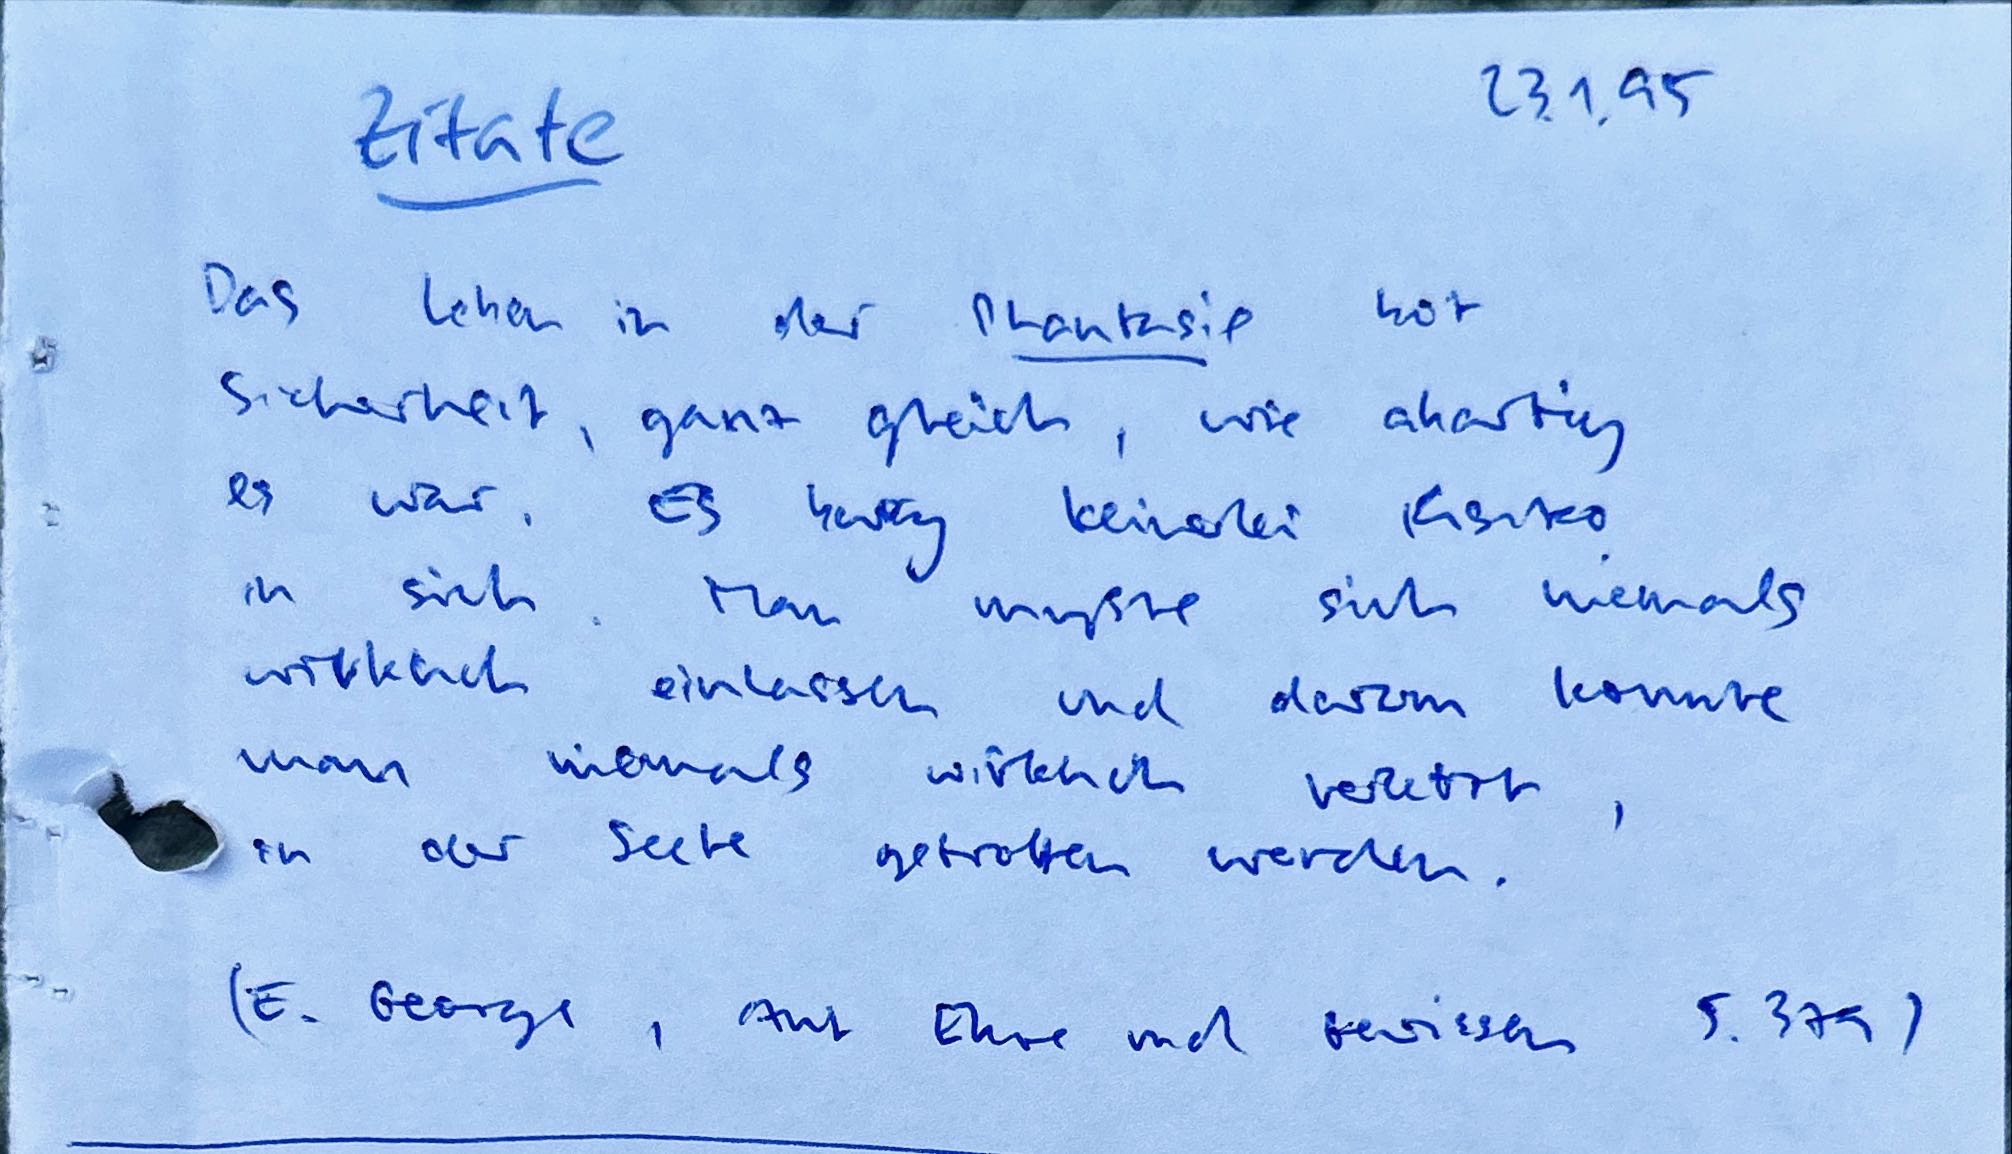 Zitate
23.1.95
Das Leben in der Phantasie bot
Sicherheit, ganz gleich, wie abartig
es war. Es barg keinerlei Risiko
in sich. Man mußte sich niemals
wirklich einlassen und darum konnte
man niemals wirklich verletzt,
in der Seele getroffen werden.
(E. George, Auf Ehre und Gewissen S. 379)